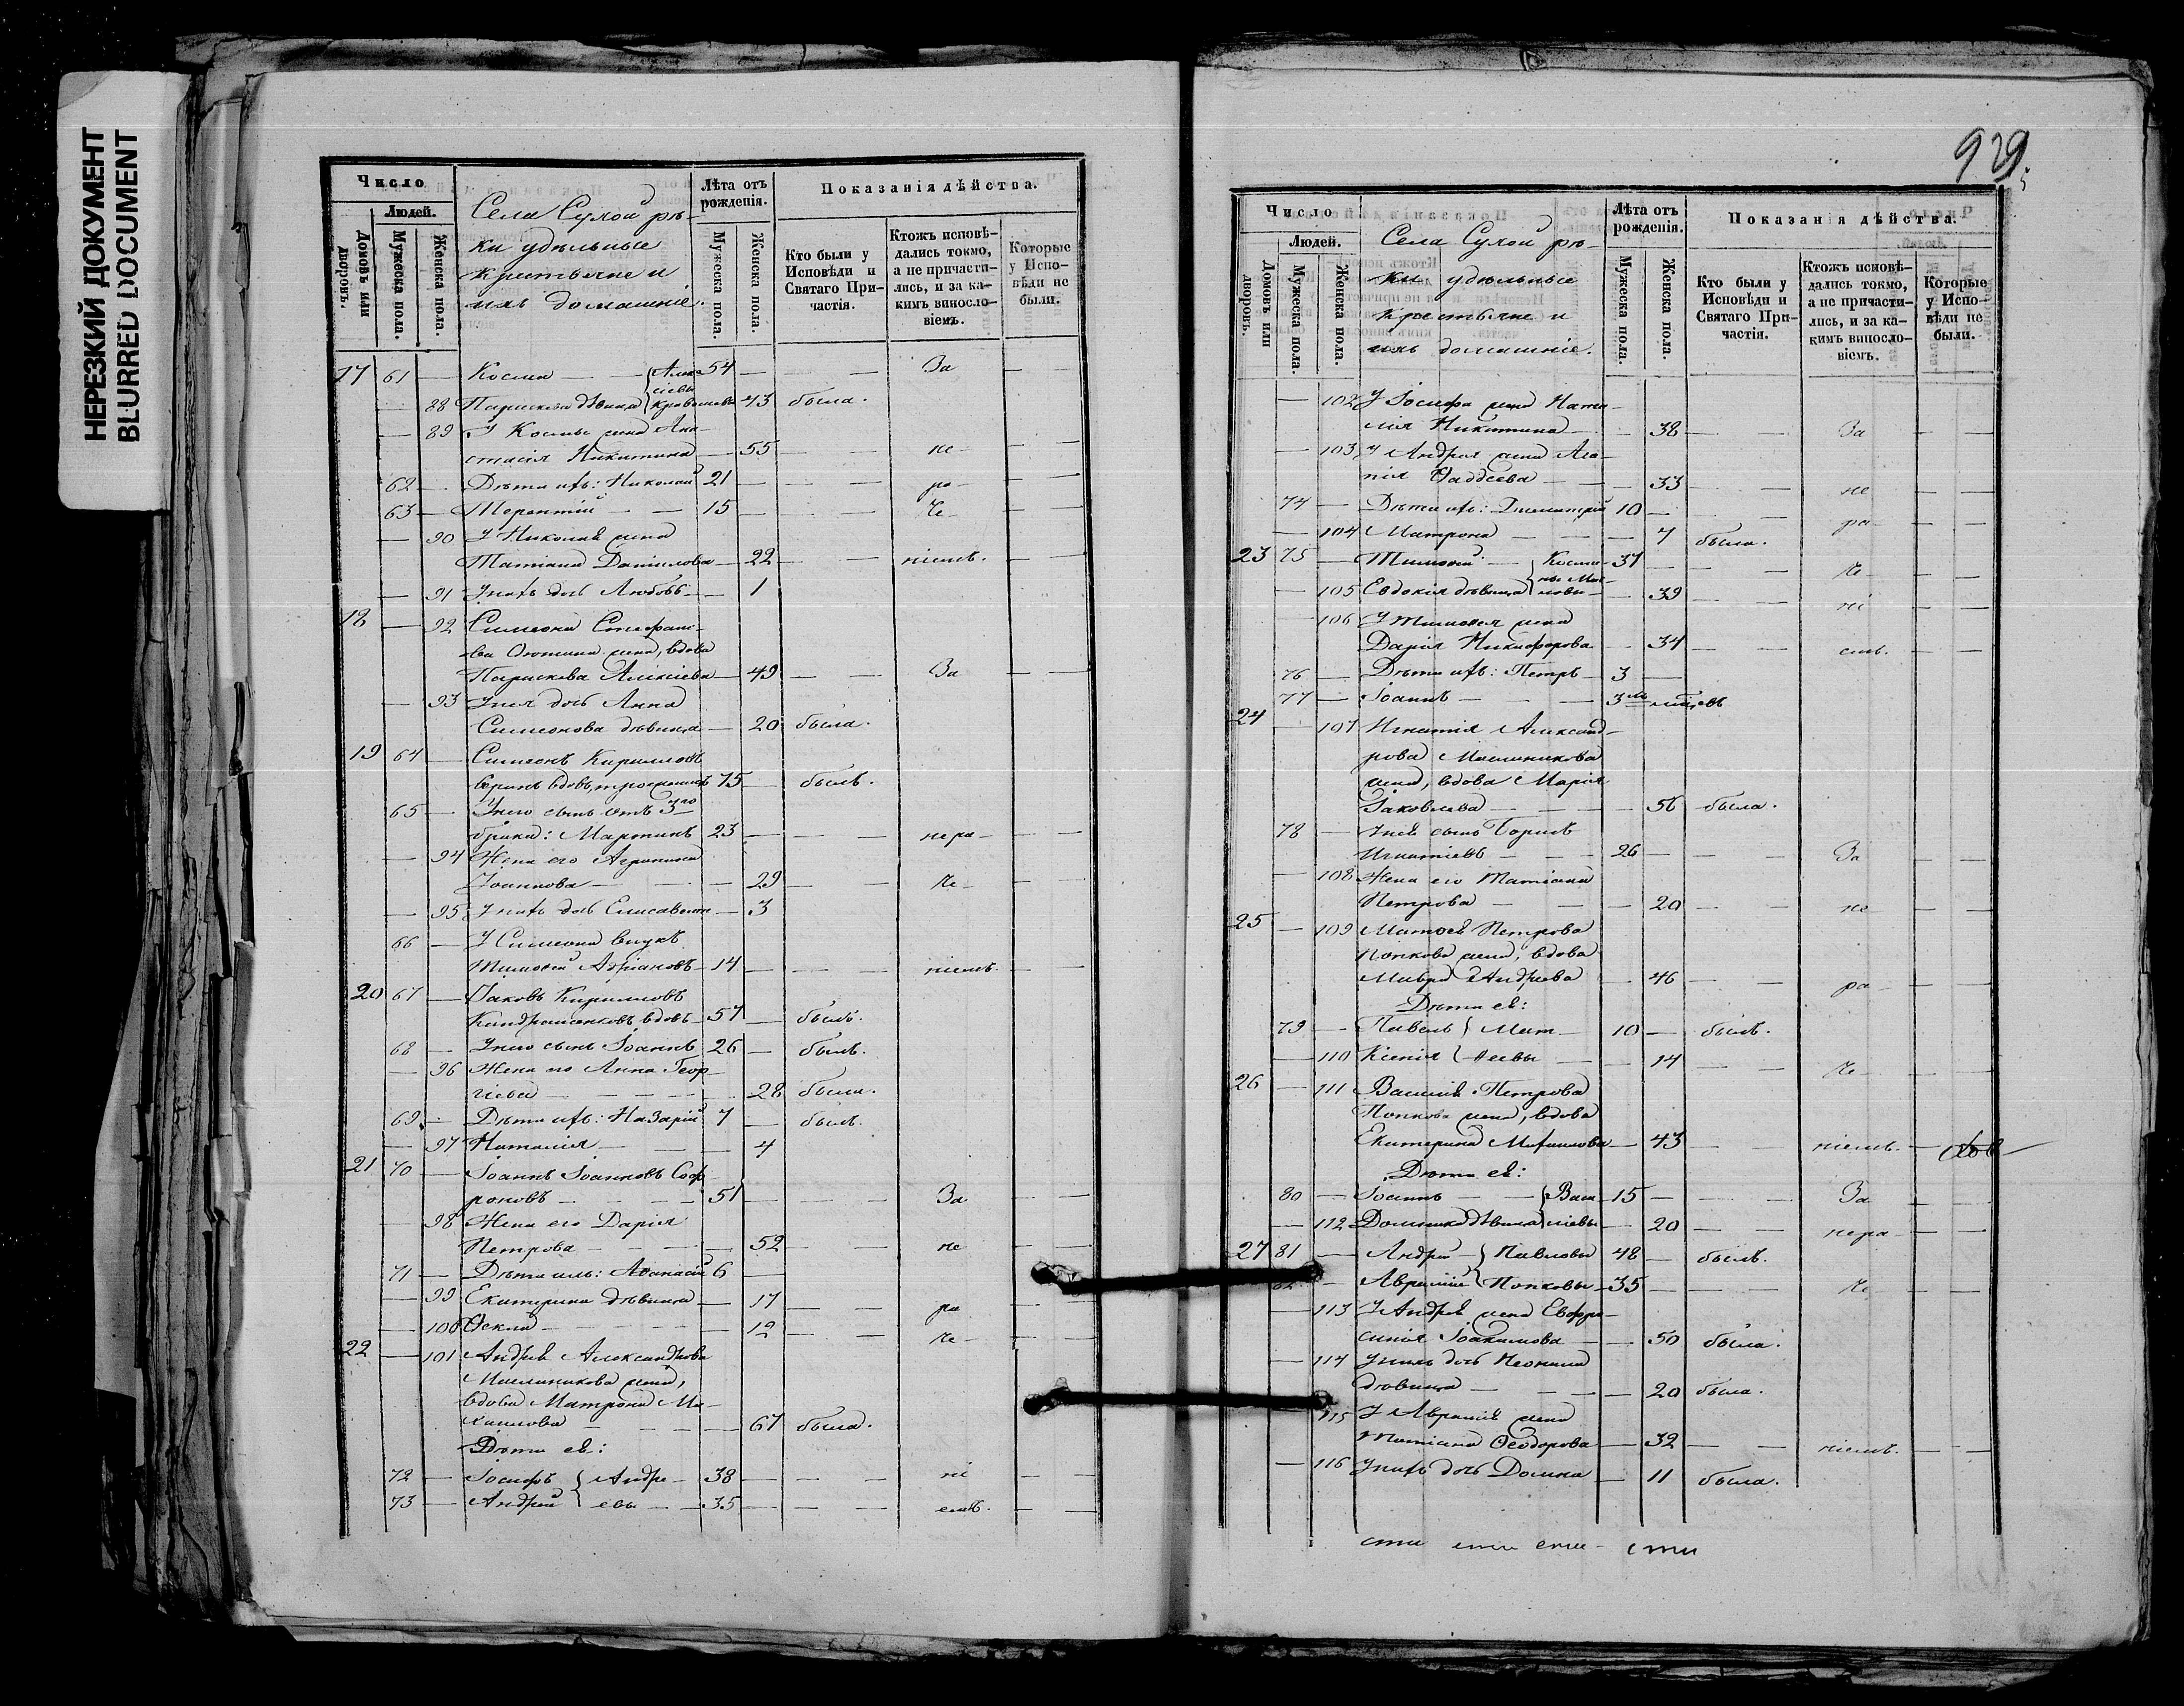 НЕРЕЗКИЙ ДОКУМЕНТ
BLURRED DOCUMENT
Число
Людей.
Домовъ или дворовъ.
Мужеска пола.
Женска пола.
Села Сухой рѣ-
ки удѣльные
крестьяне и
ихъ домашніе.
Лѣта отъ рожденія.
Мужеска пола.
Женска пола.
Показанія дѣйства.
Кто были у Исповѣди и Святаго Причастія.
Ктожъ исповѣдались токмо, а не причастились, и за какимъ винословіемъ.
Которые у Исповѣди не были.
17 61 — Косма — 54 — — — За — —
— 88 Параскева дѣвица 43 была.
— 89 У Космы жена Ана-
стасія Никитина — 55 — — не — —
62 — Дѣти ихъ: Николай 21 — — — ра — —
63 — Терентій — — 15 — — — че — —
— 90 У Николая жена
Татіана Даніилова — 22 — — ніемъ. — —
— 91 У нихъ дочь Любовь — 1
18 — 92 Симеона Стефано-
ва жена, вдова
Параскева Алексіева — 49 — — За — —
— 93 У нея дочь Анна
Симеонова дѣвица — 20 была.
19 64 — Симеонъ Кирилловъ
вдовъ, 75 — былъ.
65 — У него сынъ отъ 3го
брака: Мартинъ 23 — — — нера- — —
— 94 Жена его Агрипина
Іоаннова — — 29 — — че- — —
— 95 У нихъ дочь Елисавета — 3
66 — У Симеона внукъ
Тимоѳей Адріановъ — 14 — — — ніемъ. — —
20 67 — Іаковъ Кирилловъ
вдовъ — 57 — былъ.
68 — У него сынъ Іоаннъ 26 — былъ.
— 96 Жена его Анна Геор-
гіева — — — 28 была.
69 — Дѣти ихъ: Назарій 7 — былъ.
— 97 Наталія — — 4
21 70 — Іоаннъ Іоанновъ Соф-
роновъ — — — 51 — — — За — —
— 98 Жена его Дарія
Петрова — — — 52 — — не — —
71 — Дѣти ихъ: Аѳанасій 6 —
— 99 Екатерина дѣвица — 17 — — ра — —
— 100 Ѳекла — — — 12 — — че — —
22 — 101 Андрея Александрова
Мельникова жена,
вдова Матрона Ми-
хаилова — — — 67 была.
Дѣти ея:
72 — Іосифъ } Андре- 38 — — — ні — —
73 — Андрей } евы — 35 — — — емъ. — —
929
Число
Людей.
Домовъ или дворовъ.
Мужеска пола.
Женска пола.
Села Сухой рѣ-
ки удѣльные
крестьяне и
ихъ домашніе.
Лѣта отъ рожденія.
Мужеска пола.
Женска пола.
Показанія дѣйства.
Кто были у Исповѣди и Святаго Причастія.
Ктожъ исповѣдались токмо, а не причастились, и за какимъ винословіемъ.
Которые у Исповѣди не были.
— 102 У Іосифа жена Ната-
лія Никитина — 38 — — За — —
— 103 У Андрея жена Ага-
пія Ѳаддеева — 33 — — не — —
74 — Дѣти ихъ: Димитрій 10 —
— 104 Матрона — — 7 была. ра
23 75 — Тимоѳей — } Косми- 37 — — — че — —
— 105 Евдокія дѣвица } ны — 39 — — ні — —
— 106 У Тимоѳея жена
Дарія Никифорова — 34 — — емъ. — —
76 — Дѣти ихъ: Петръ — 3 —
77 — Іоаннъ — — 3
24 — 107 Игнатія Александ-
рова Мельникова
жена, вдова Марія
Іаковлева — — — 56 была.
78 — У нея сынъ Борисъ
Игнатіевъ — — 26 — — — За — —
— 108 Жена его Татіана
Петрова — — — 20 — — не — —
25 — 109 Матѳея Петрова
Попкова жена, вдова
Мавра Андреева — 46 — — ра — —
Дѣти ея:
79 — Павелъ } Мат- 10 — былъ.
— 110 Ксенія } ѳеевы — 14 — — че — —
26 — 111 Василія Петрова
Попкова жена, вдова
Екатерина Михаилова — 43 — — ніемъ. —
Дѣти ея:
80 — Іоаннъ — } Васи- 15 — — — За — —
— 112 Домника дѣвица } ліевы — 20 — — нера — —
27 81 — Андрей } Павловы 48 — былъ.
82 — Аврамій } Попковы 35 — — — че — —
— 113 У Андрея жена Евфро-
синія Іоакимова — 50 была.
— 114 У нихъ дочь Неонила
дѣвица — — — 20 была.
115 У Аврамія жена
Татіана Ѳеодорова — 32 — — ніемъ. — —
— 116 У нихъ дочь Домна — 11 была.